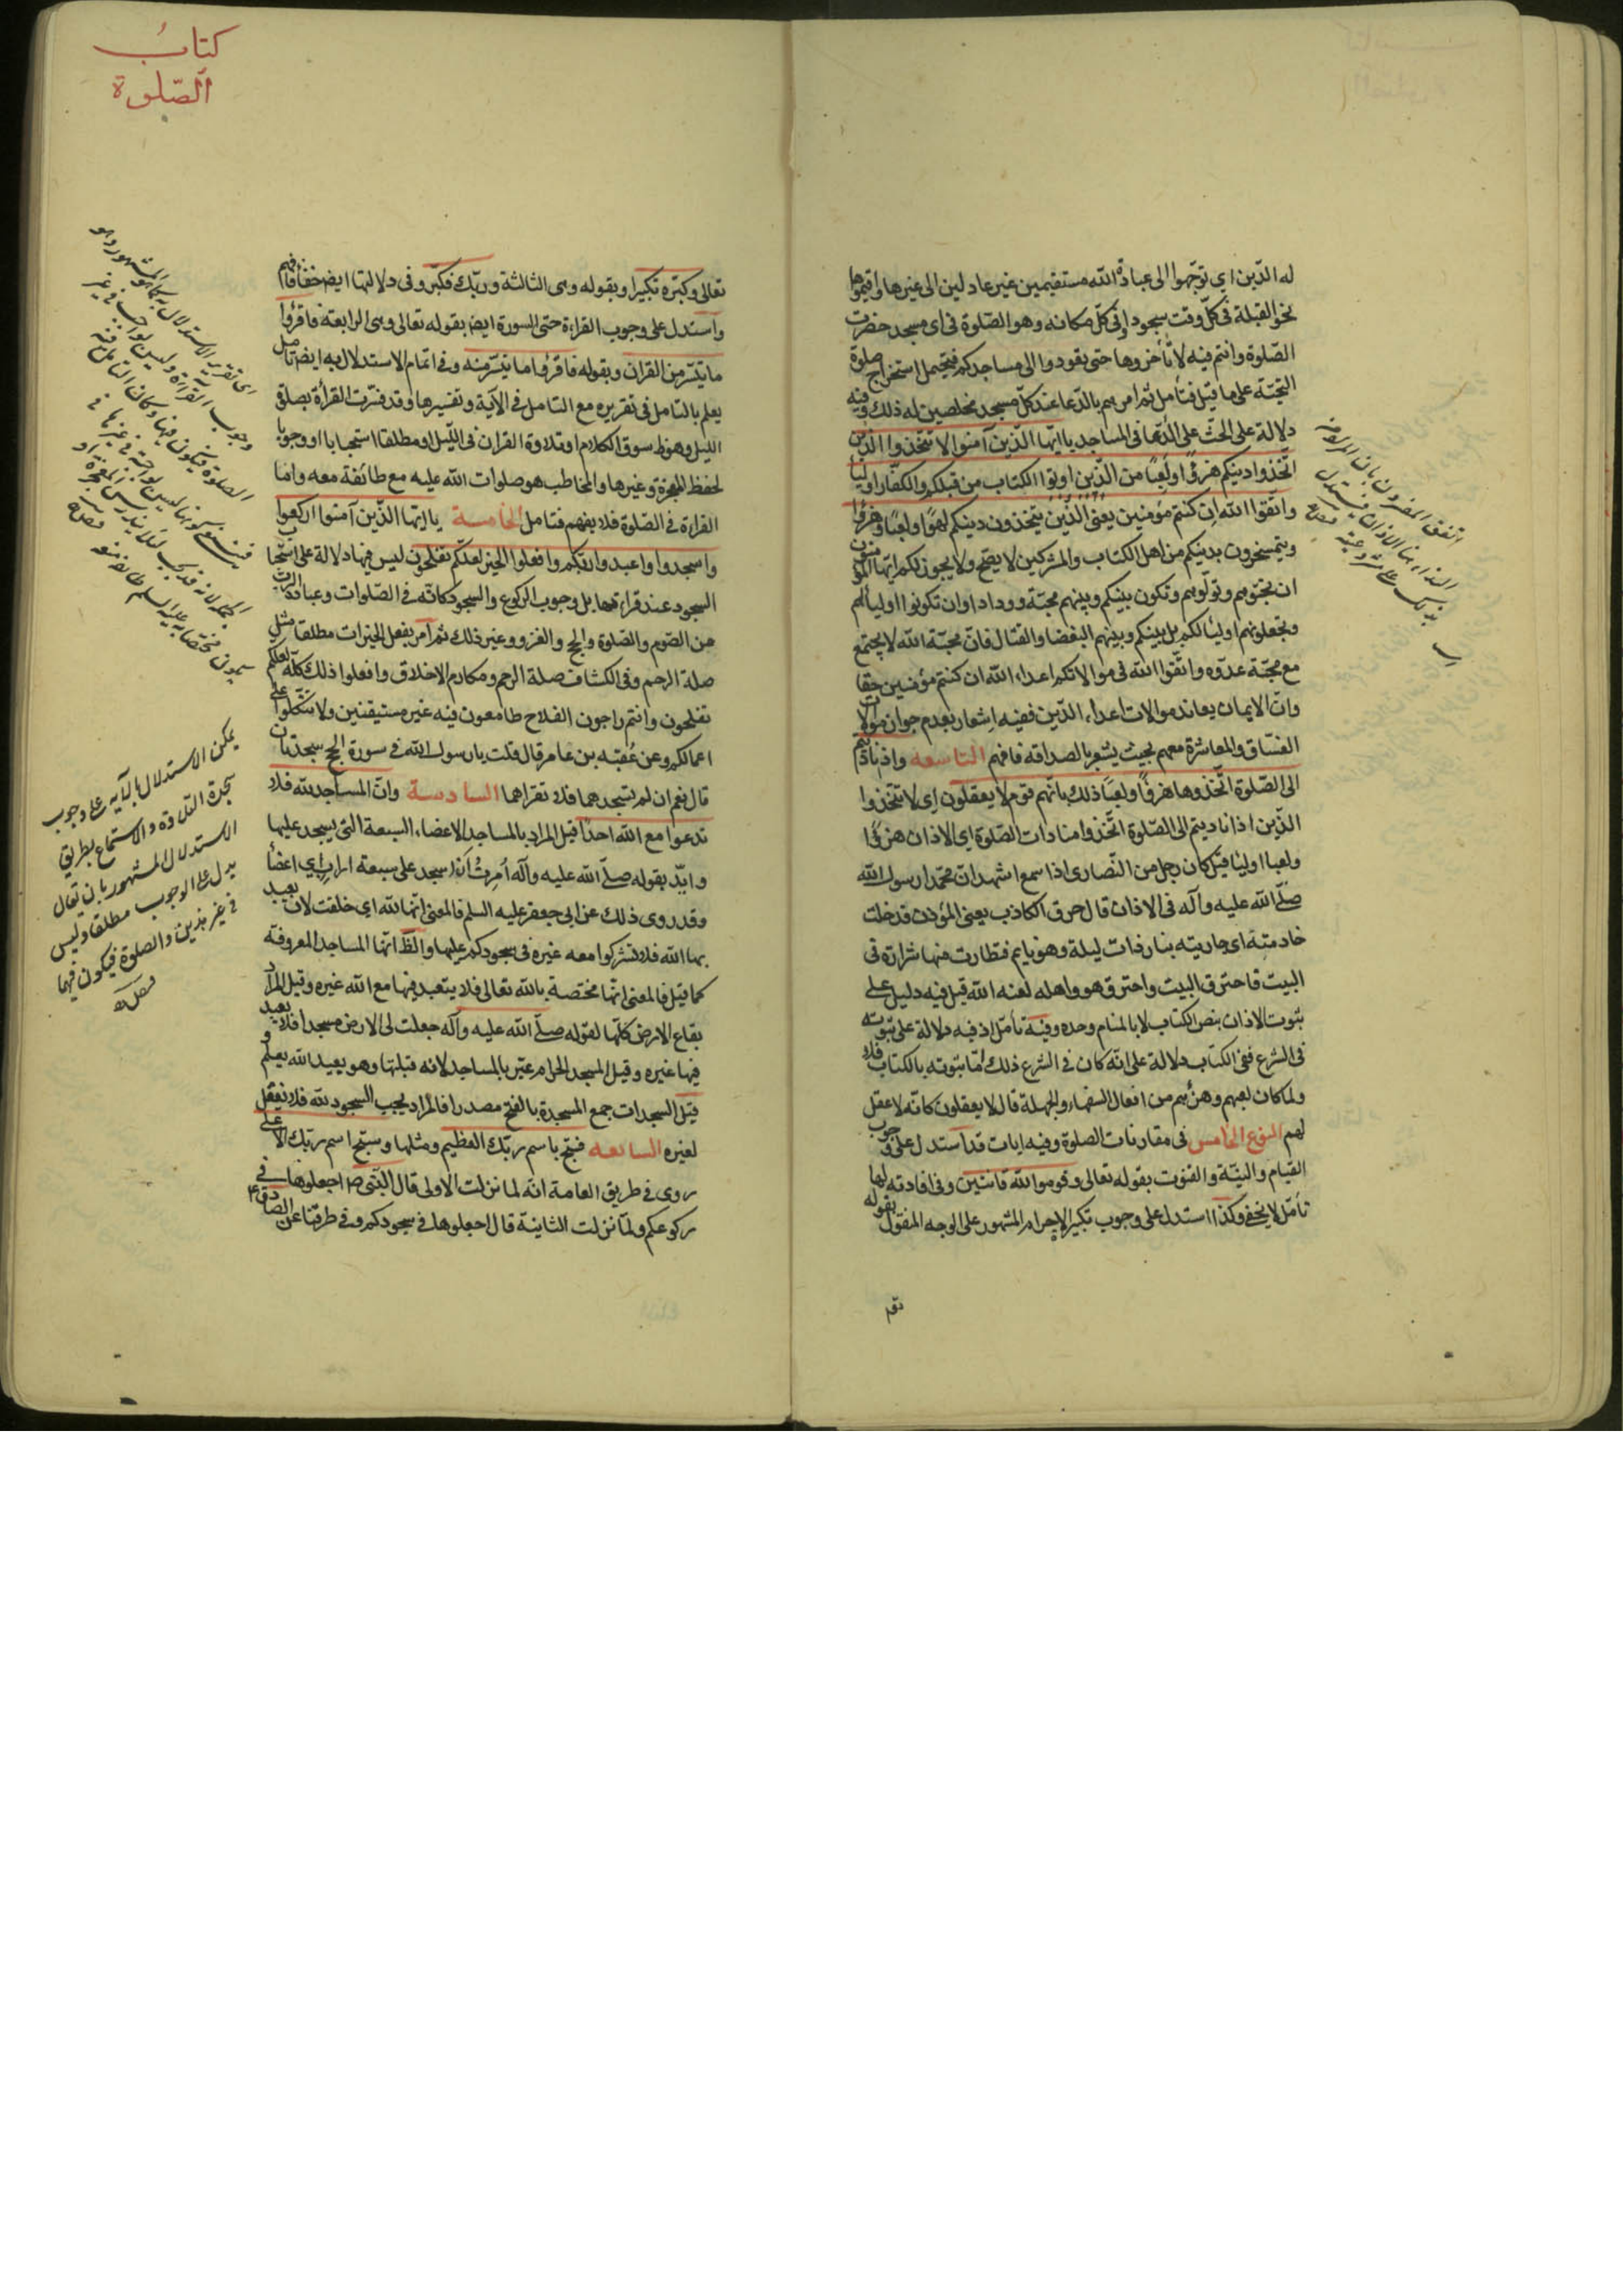 له الدّين اي توجّهوا الى عبادة الله مستقيمين غير عادلين الى غيرها واقيموها
نحو القبلة فى كلّ وقت سجود او فى كلّ مكانه وهو الصّلوة فى اى مسجد حضرت
الصّلوة وانتم فيه لا تأخروها حتى يعودوا الى مساجدكم فيحتمل استخراج صلوة
التحيّة على ما قيل فتأمل ثم امرهم بالدّعا عند كلّ مسجد مخلصين له ذلك وفيه
دلالة على الحثّ على الدّعا فى المساجد يا ايّها الّذين آمنوا لا تتّخذوا الّذين
اتّخذوا دينكم هزؤًا ولعبًا من الّذين اوتوا الكتاب من قبلكم والكفّار اوليا
واتّقوا الله ان كنتم مؤمنين يعنى الّذين يتّخذون دينكم لهوًا ولعبًا وهزؤا
ويتمسخرون بدينكم من اهل الكتاب والمشركين لا يصحّ ولا يجوز لكم ايّها المؤمنون
ان تحبّوهم وتولّوهم وتكون بينكم وبينهم محبّة وودادا وان تكونوا اوليائهم
وتجعلونهم اوليا لكم بل بينكم وبينهم البغضا والقتال فانّ محبّة الله لا يجتمع
مع محبّة عدوّه واتّقوا الله فى موالاتكم اعداء الله ان كنتم مؤمنين حقا
وانّ الايمان يعاند موالات اعداء الدّين ففيه اشعار بعدم جواز موالات
الفسّاق والمعاشرة معهم بحيث يشعر بالصداقة فافهم التاسعه واذا ناديتم
الى الصّلوة اتّخذوها هزؤًا ولعبًا ذلك بانّهم قوم لا يعقلون اى لا تتّخذوا
الّذين اذا ناديتم الى الصّلوة اتّخذوا مناداة الصّلوة اى الاذان هزؤًا
ولعبا اوليا قيل كان رجل من النّصارى اذا سمع اشهد ان محمّدا رسول الله
صلّى الله عليه وآله فى الاذان قال حرق الكاذب يعنى المؤذن فدخلت
خادمته اى جاريته بنار ذات ليلة وهو نايم فتطارت منها شرارة فى
البيت فاحترق البيت واحترق هو واهله لعنه الله قيل فيه دليل على
ثبوت الاذان بنص الكتاب لا بالمنام وحده وفيه تأمّل اذ فيه دلالة على ثبوته
فى الشرع ففى الكتاب دلالة على انّه كان فى الشرع ذلك امّا ثبوته بالكتاب فلا
ولما كان لعبهم وهزئهم من افعال السفهاء والجهلة قال لا يعقلون كانّه لا عقل
لهم النوع الخامس فى مقارنات الصلوة وفيه ايات قد استدل على وجوب
القيام والنيّة والقنوت بقوله تعالى وقوموا لله قانتين وفى افادته لها
تأمّل لا يخفى وكذا استدل على وجوب تكبير الاحرام المشهور على الوجه المنقول بقوله
كتاب
الصّلوة
تعالى وكبّره تكبيرا وبقوله وهى الثالثة وربّك فكبّر وفى دلالتها ايضا خفأ فافهم
واستدل على وجوب القراءة حتى السورة ايضا بقوله تعالى وهى الرابعة فاقرؤا
ما تيسّر من القران وبقوله فاقرؤا ما تيسّر منه وفى اتمام الاستدلال به ايضا تامل
يعلم بالتامل فى تقريره مع التامل فى الآية وتفسيرها وقد فسّرت القرأة بصلوة
الليل وهو ظ سوق الكلام او تلاوة القران فى الليل او مطلقا استحبابا او وجوبا
لحفظ المعجزة وغيرها والمخاطب هو صلوات الله عليه مع طائفة معه وامّا
القراءة فى الصّلوة فلا يفهم فتامل الخامسة يا ايّها الّذين آمنوا اركعوا
واسجدوا واعبدوا ربّكم وافعلوا الخير لعلّكم تفلحون ليس فيها دلالة على استحباب
السجود عند قراءتها بل وجوب الركوع والسجود كانّه فى الصّلوات وعبادة الربّ
من الصّوم والصّلوة والحج والغزو وغير ذلك ثم امر بفعل الخيرات مطلقا مثل
صلة الرحم وفى الكشاف صلة الرحم ومكارم الاخلاق وافعلوا ذلك كلّه لعلّكم
تفلحون وانتم راجون الفلاح طامعون فيه غير مستيقنين ولا تتّكلوا على
اعمالكم وعن عقبه بن عامر قال قلت يا رسول الله فى سورة الحج سجدتان
قال نعم ان لم تسجدهما فلا تقراهما السادسة وانّ المساجد لله فلا
تدعوا مع الله احدًا قيل المراد بالمساجد الاعضاء السبعة التى يسجد عليها
وايّد بقوله صلّى الله عليه وآله أمرت أن اسجد على سبعة اراب اى اعضأ
وقد روى ذلك عن ابى جعفر عليه السلم فالمعنى انّها لله اى خلقت لان يعبد
بها الله فلا تشركوا معه غيره فى سجودكم عليها والظّ انّها المساجد المعروفة
كما قيل فالمعنى انّها مختصة بالله تعالى فلا يتعبد فيها مع الله غيره وقيل المراد
بقاع الارض كلّها لقوله صلّى الله عليه وآله جعلت لى الارض مسجدا فلا يعبد
فيها غيره وقيل المسجد الحرام عبّر بالمساجد لانه قبلتها وهو بعيد الله يعلم و
قيل السجدات جمع المسجدة بالفتح مصدرا فالمراد يجب السجود لله فلا يفعل
لغيره السابعه فسبّح باسم ربّك العظيم ومثلها وسبّح اسم ربّك الاعلى
روى فى طريق العامة انّه لما نزلت الاولى قال النّبى ص اجعلوها فى
ركوعكم ولمّا نزلت الثانية قال اجعلوها فى سجودكم وفى طرقنا عن الصادق ع
يمكن الاستدلال بالآية على وجوب
سجدة التلاوة والاستماع بطريق
الاستدلال المشهور بان يقال
يدل على الوجوب مطلقا وليس
فى غير هذين والصلوة فيكون فيها